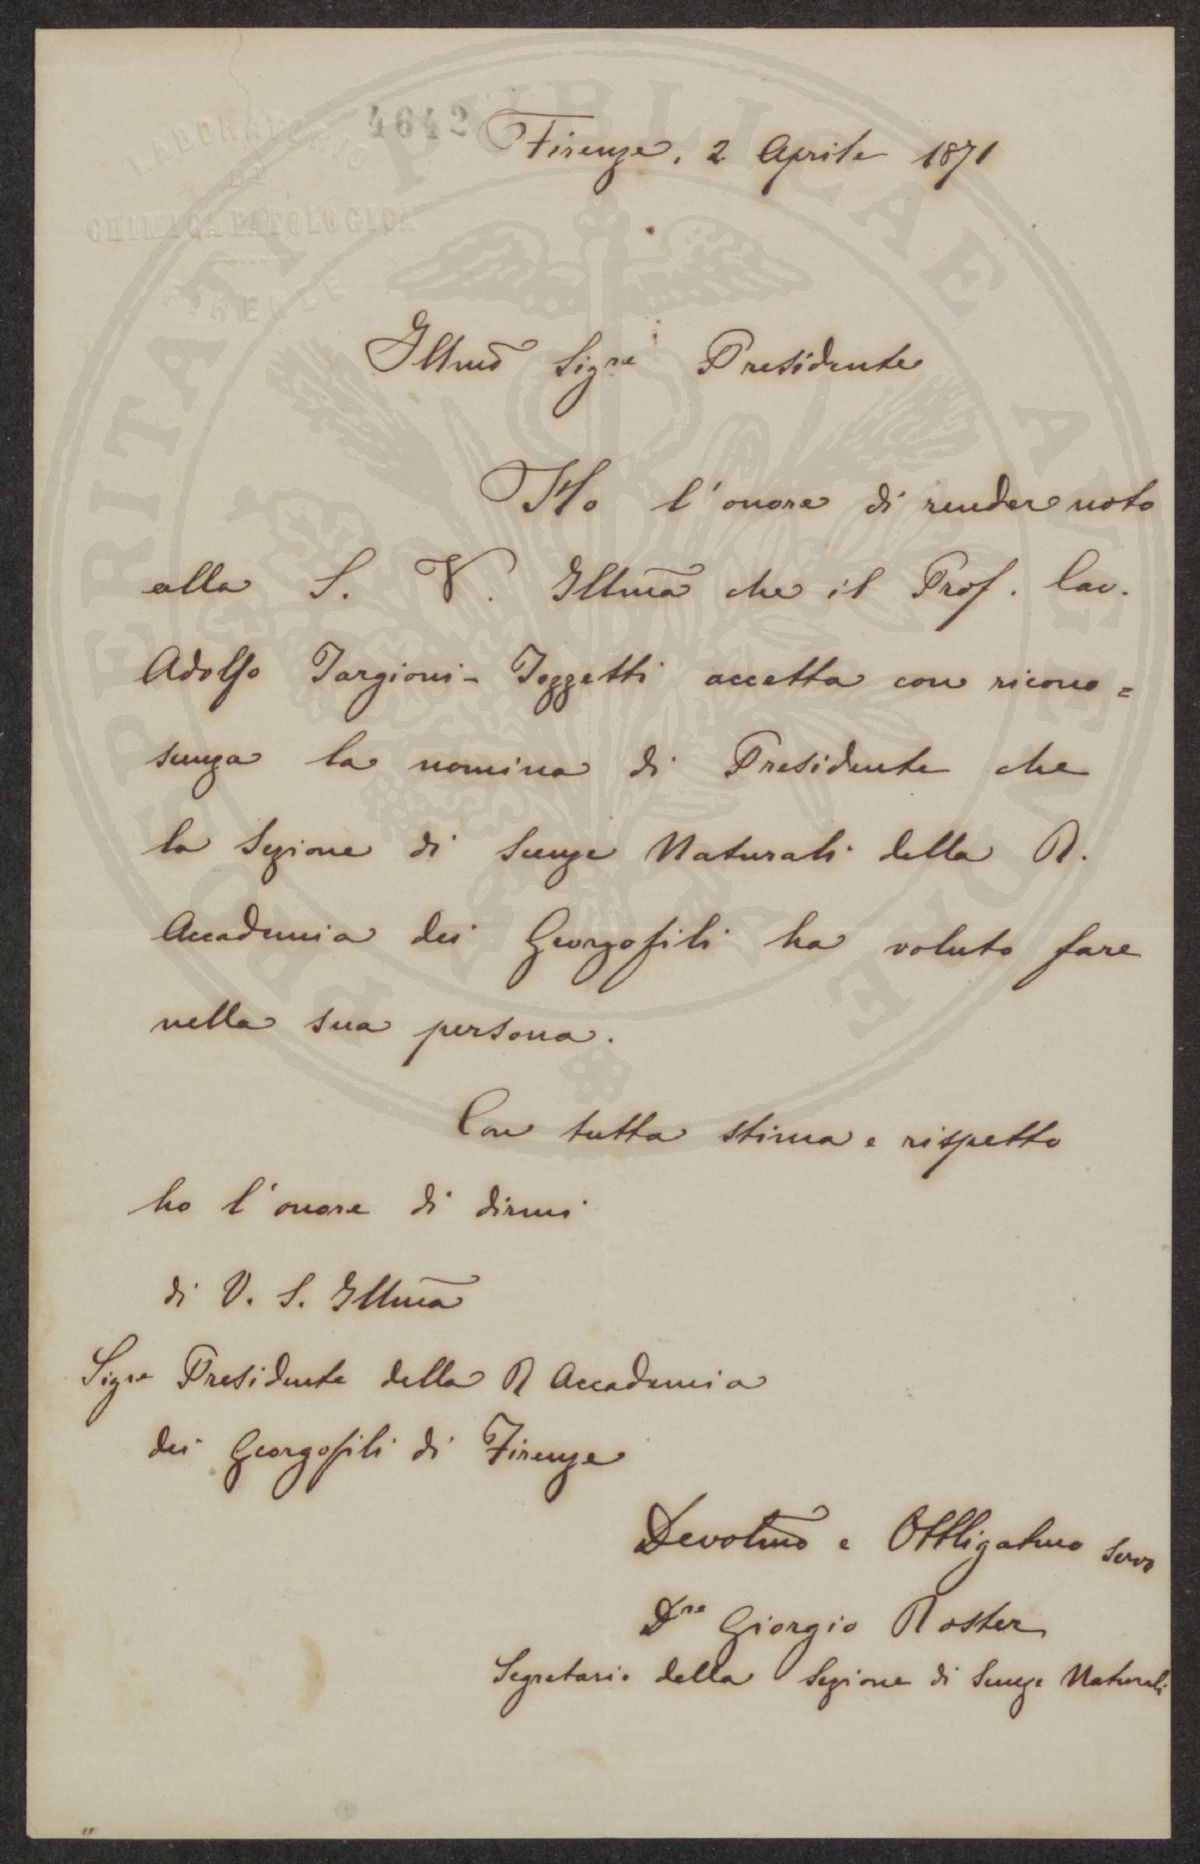 LABORATORIO
DI
CHIMICA PATOLOGICA
FIRENZE
4642
PROSPERITATI PUBLICAE AUGENDAE
Firenze, 2 Aprile 1871
Illmo Sigre Presidente
Ho l'onore di render noto
alla S. V. Illma che il Prof. Cav.
Adolfo Targioni-Tozzetti accetta con ricono=
scenza la nomina di Presidente che
la Sezione di Scienze Naturali della R.
Accademia dei Georgofili ha voluto fare
nella sua persona.
Con tutta stima e rispetto
ho l'onore di dirmi
di V. S. Illma
Sigre Presidente della R Accademia
dei Georgofili di Firenze
Devotmo e Obbligatmo servo
Dre Giorgio Roster
Segretario della Sezione di Scienze Naturali